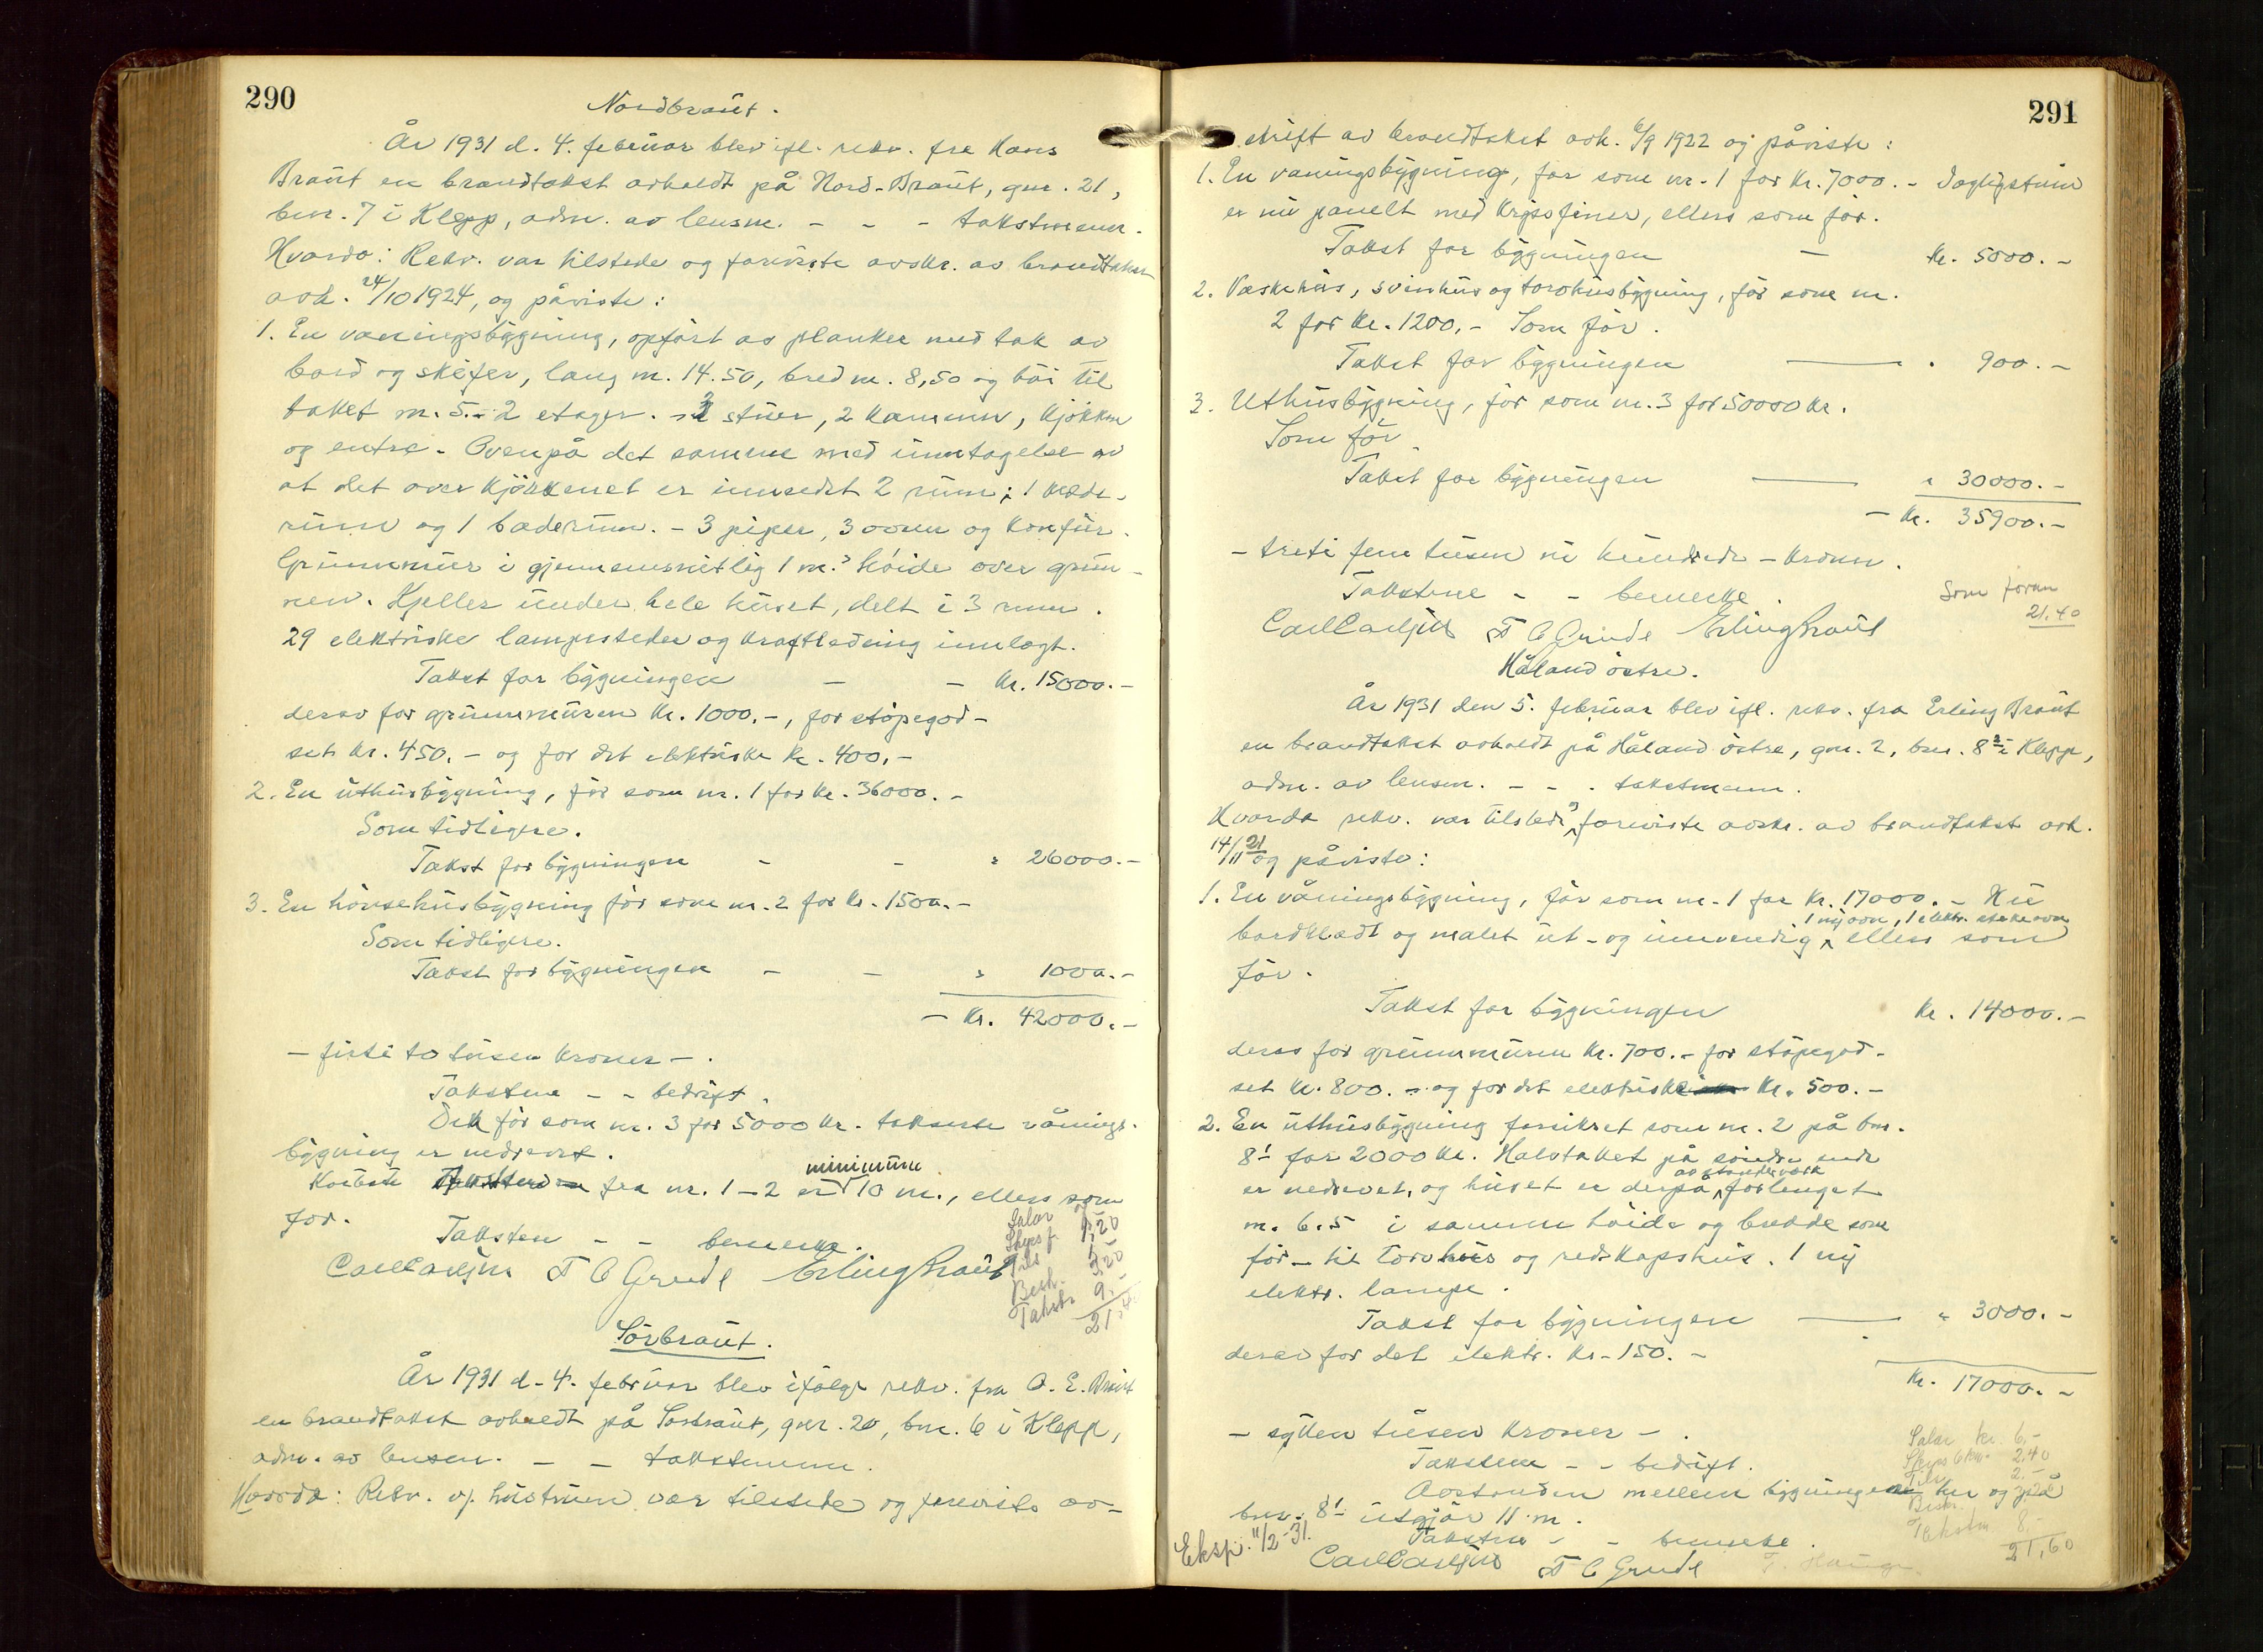 290
Nordbraut.
År 1931 d. 4. februar blev ifl. rekv. fra Hans
Braut en brandtakst avholdt på Nord-Braut, gnr. 21,
bnr. 7 i Klepp, adm. av lensm. - - - takstmenn.
Hvorda: Rekv. var tilstede og foreviste avskr. av brandtakst
avh. 24/10 1924, og påviste:
1. En våningsbygning, opført av planker med tak av
bord og skifer, lang m. 14.50, bred m. 8,50 og høi til
taket m. 5.- 2 etager. - 2 stuer, 2 kammer, kjøkken
og entre. Ovenpå det samme med unntagelse av
at det over kjøkkenet er innredet 2 rum; 1 klæde-
rum og 1 baderum. - 3 piper, 3 ovner og komfur.
Grunnmur i gjennemsnitlig 1 m.s høide over grun-
nen. Kjeller under hele huset, delt i 3 rum.
29 elektriske lampesteder og kraftledning innlagt.
Takst for bygningen - - Kr. 15000.-
derav for grunnmuren Kr. 1000.-, for støpegod-
set kr. 450.- og for det elektriske Kr. 400.-
2. En uthusbygning, før som nr. 1 for Kr. 36000.-
Som tidligere.
Takst for bygningen - - " 26000.-
3. En hønsehusbygning før som nr. 2 for Kr. 1500.-
Som tidligere.
Takst for bygningen - - " 1000.-
- Kr. 42000.-
- førti to tusen kroner -.
Takstene - - bedrift.
Den før som nr. 3 for 5000 kr. takserte vånings-
bygning er nedrevet.
minimum
fra nr. 1-2 er 10 m., ellers som
før.
Taksten - - bemerke.
Carl Carlsen T C Grude Erling Braut
Salær
Skyss
Tils
Besk.
Takstm. 9.-
21.40
Sørbraut.
År 1931 d. 4. februar blev ifølge rekv. fra O. E. Braut
en brandtakst avholdt på Sørbraut, gnr. 20, bnr. 6 i Klepp,
adm. av lensm. - - takstmenn.
Hvorda: Rekv. v/ hustruen var tilstede og foreviste av-
291
skrift av brandtakst avh. 6/9 1922 og påviste:
1. En våningsbygning, før som nr. 1 for Kr. 7000.- Dagligstuen
er nu panelt med kryssfiner, ellers som før.
Takst for bygningen - Kr. 5000.-
2. Vaskehus, svinhus og torvhusbygning, før som nr.
2 for Kr. 1200.- Som før.
Takst for bygningen — " 900.-
3. Uthusbygning, før som nr. 3 for 50000 kr.
Som før.
Takst for bygningen — " 30000.-
- Kr. 35900.-
- tretti fem tusen ni hundrede - kroner.
Takstene - - bemerke.
Som foran
21.40
Carl Carlsen T C Grude Erling Braut
Håland østre.
År 1931 den 5. februar blev ifl. rekv. fra Erling Braut
en brandtakst avholdt på Håland østre, gnr. 2, bnr. 8 i Klepp,
adm. av lensm. - - - takstmenn.
Hvorda rekv. var tilstede og foreviste avskr. av brandtakst avh.
14/11 21 og påviste:
1. En våningsbygning, før som nr. 1 for Kr. 17000.- Nu
1 ny ovn, 1 elektr. stekeovn
bordklædt og malet ut- og innvendig, ellers som
før.
Takst for bygningen Kr. 14000.-
derav for grunnmuren Kr. 700.- for støpegod-
set kr. 800.- og for det elektriske Kr. 500.-
2. En uthusbygning forsikret som nr. 2 på bnr.
8¹ for 2000 kr. Halvtaket på søndre ende
av stenderverk
er nedrevet, og huset er derpå forlenget
m. 6.5 i samme høide og bredde som
før - til torvhus og redskapshus. 1 ny
elektr. lampe.
Takst for bygningen — " 3000.-
derav for det elektr. kr. 150.-
Kr. 17000.-
- sytten tusen kroner -.
Takstene - - bedrift.
Avstanden mellem bygningene her og på
bnr. 8¹ utgjør 11 m.
Taksten - - bemerke.
Salær kr. 6.-
Skyss 6 km. 2.40
Tils. 2.-
Besk.
Takstm 8.-
21,60
Eksp. 11/2-31.
Carl Carlsen T C Grude